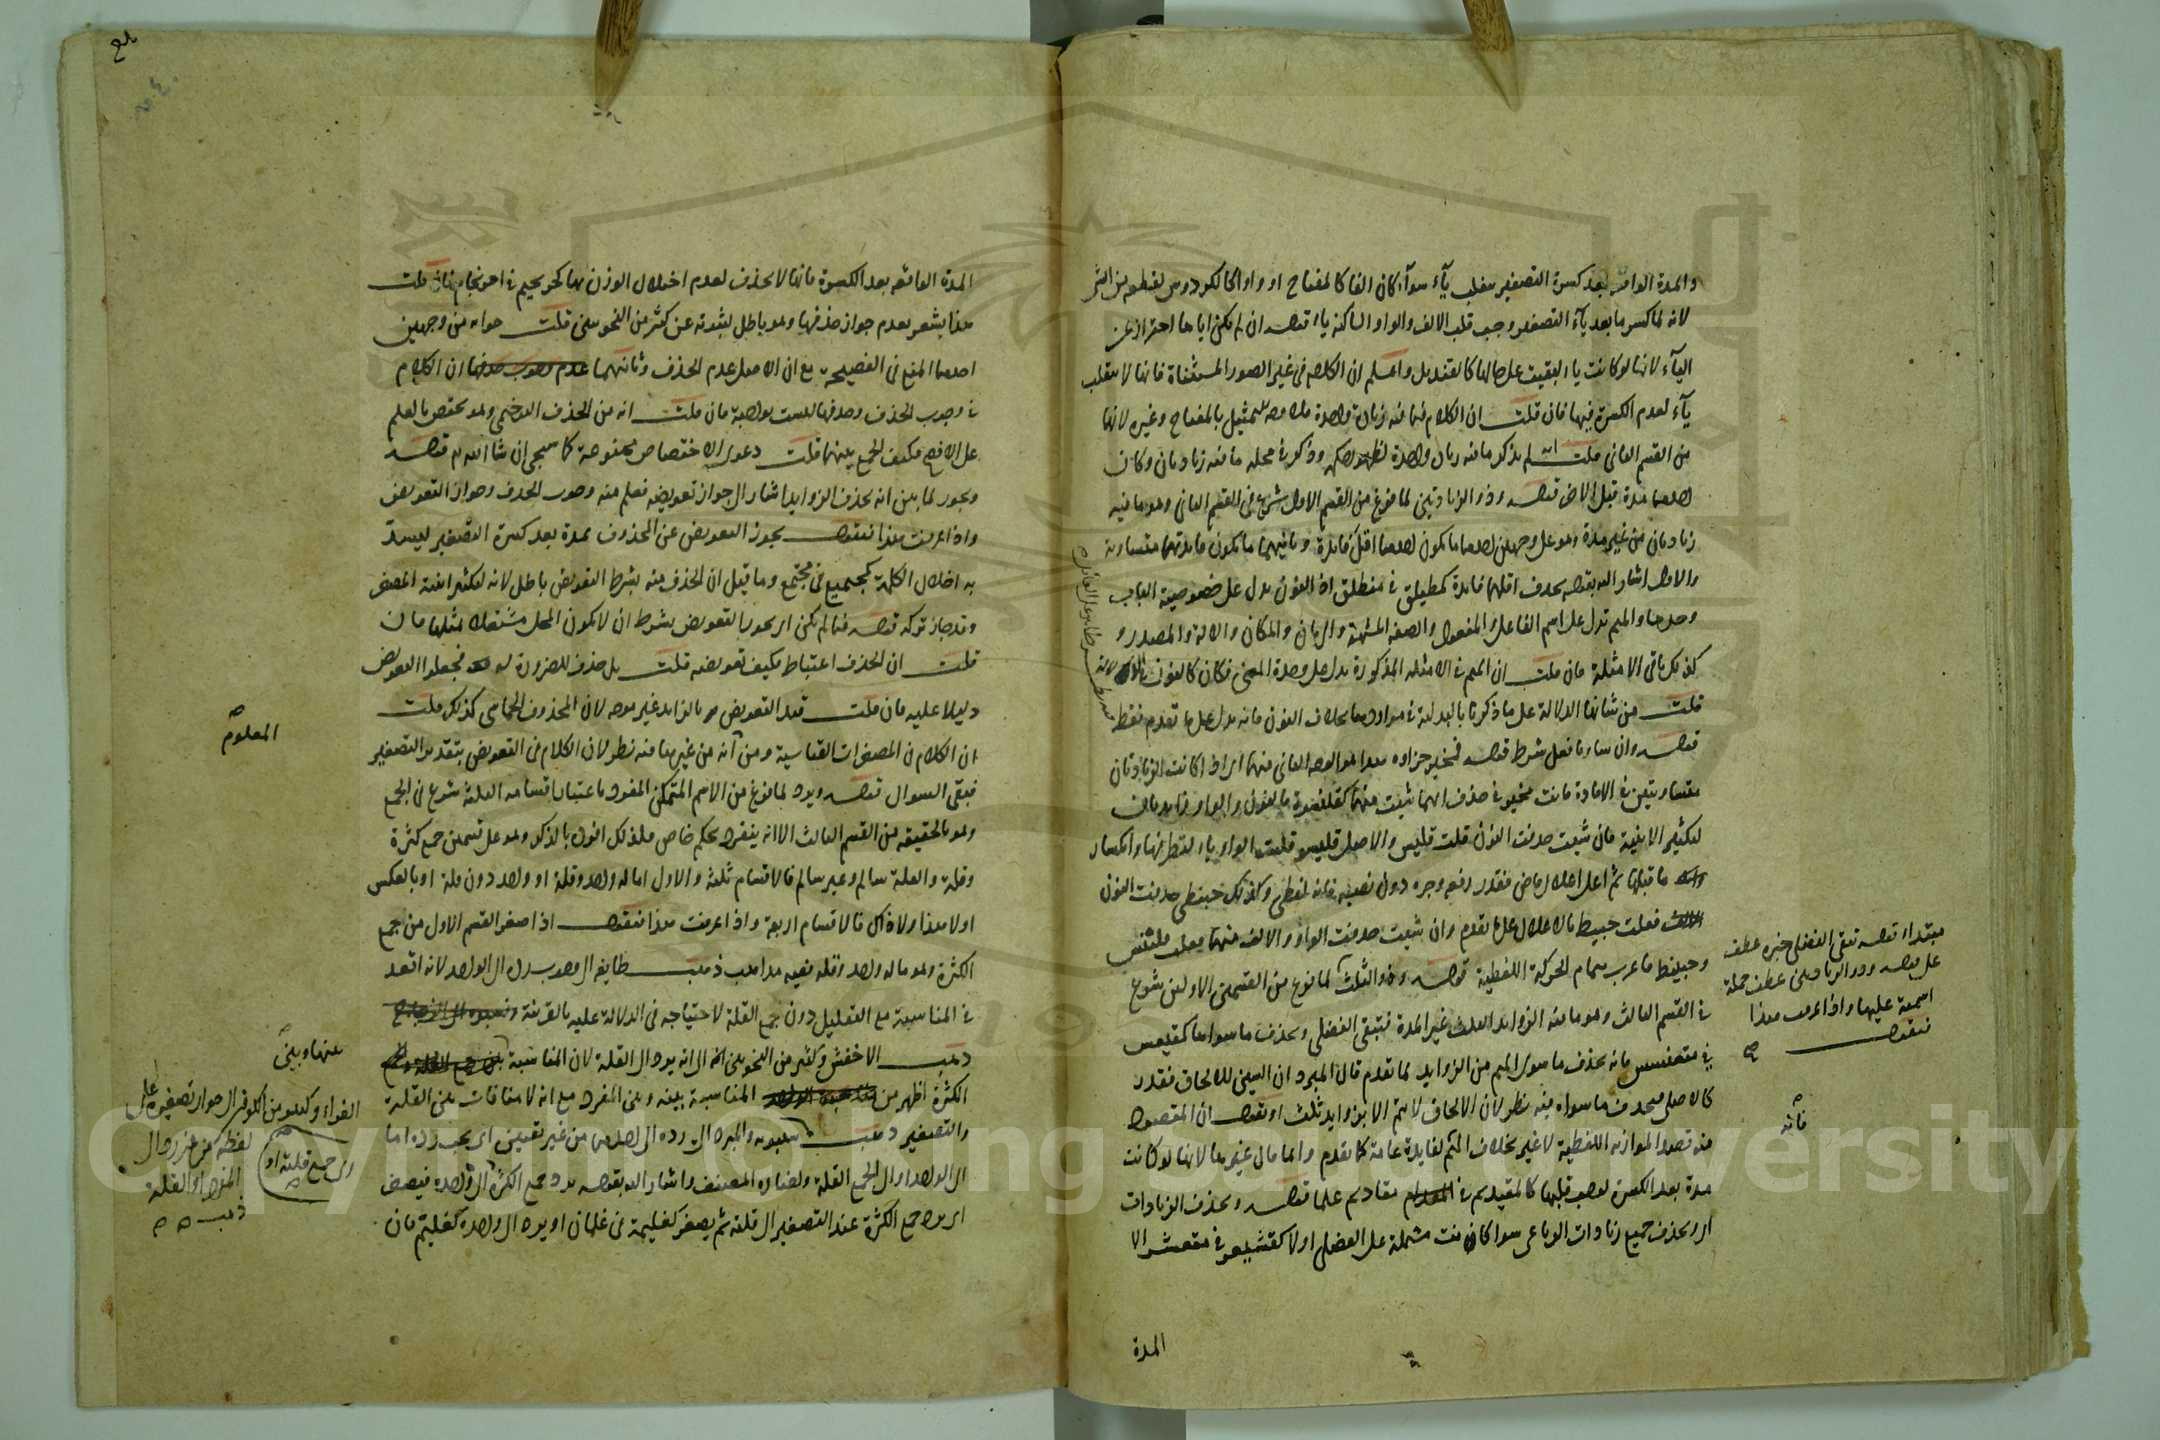 والمدة الواقعة بعد كسرة التصغير ينقلب يآء سوآء كان الفا كالمفتاح او واوا كالكردوس لقطعة من
لانه لما كسر ما بعد يآء التصغير وجب قلب الالف والواو الساكنة ياء قوله ان لم يكن اياها احتراز عن
اليآء لانها لو كانت ياء لبقيت على حالها كالقنديل واعلم ان الكلام في غير الصور المستثناة فانها لا ينقلب
يآء لعدم الكسرة فيها فان قلت ان الكلام فيما فيه زيادة واحدة فلا وجه لتمثيل بالمفتاح وغيره لانها
من القسم الثاني قلت انه لم يذكر ما فيه زيادة واحدة لظهور حكمه وذكر في محله ما فيه زيادتان وكان
احدهما مدة قبل الاخر قوله وذو الزيادتين لما فرغ من القسم الاول شرع في القسم الثاني وهو ما فيه
زيادتان من غير مدة وهو على وجهين احدهما ما يكون احدهما اقل فائدة وثانيهما ما يكون فائدتهما متساوية
والاول اشار اليه بقوله يحذف اقلهما فائدة كمطيلق في منطلق اذ النون يدل على خصوصية الباب
وحدها والميم تدل على اسم الفاعل والمفعول والصفة المشبهة والزمان والمكان والالة والمصدر و
كذلك باقي الامثلة فان قلت ان الميم في الامثلة المذكورة يدل على وحدة المعنى فكان كالنون
قلت من شانها الدلالة على ما ذكرنا بالبدلية في موادها بخلاف النون فانه يدل على ما تقدم فقط
قوله وان ساويا فعل شرط قوله فمخير جزاؤه هذا هو الوجه الثاني منهما اي اذا كانت الزيادتان
متساويتين في الافادة فانت مخير في حذف ايهما شئت منهما كقلنسوة فالنون والواو زايدتان
لتكثير الابنية فان شئت حذفت النون قلت قليس والاصل قليسو قلبت الواو ياء لتطرفها وانكسار
ما قبلها ثم اعل اعلال قاض فتقدر رفعه وجره دون نصبه فانه لفظي وكذلك حبنطى حذفت النون
فقلت حبيط فالاعلال على ما تقدم وان شئت حذفت الواو والالف منهما فقلت قلينس
وحبينط فاعرب بتمام الحركة اللفظية قوله وذو الثلث لما فرغ من القسمين الاولين شرع
في القسم الثالث وهو ما فيه الزوايد الثلث غير المدة فتبقى الفضلى ويحذف ما سواها كمقيعس
في مقعنسس فانه يحذف ما سوى الميم من الزوايد لما تقدم قال المبرد ان السين للالحاق فتقدر
كالاصلي فيحذف ما سواه فيه نظر لان الالحاق لا يتم الا بزوايد ثلث او نقول ان المقصود
منه قصد الموازنة اللفظية لا غير بخلاف الميم لفايدة عامة كما تقدم وانما قال غيرها لانها لو كانت
مدة بعد الكسرة لوجب قلبها كالمقيديم في مقاديم علما قوله ويحذف الزيادات
اي ويحذف جميع زيادات الرباعي سوا كانت مشتملة على الفضلى اولا كقشيعر في مقشعر الا
المدة
مبتداء قوله تبقى الفضلى خبره عطف
على قوله وذو الزيادتين عطف جملة
اسمية عليها واذا عرفت هذا
فنقول
فانه
المدة الواقعة بعد الكسرة فانها لا يحذف لعدم اختلال الوزن بها كحريجيم في احرنجام فان قلت
هذا يشعر بعدم جواز حذفها وهو باطل لشهرته عن كثير من النحويين قلت جوابه من وجهين
احدهما المنع في الفصيحة مع ان الاصل عدم الحذف وثانيهما ان الكلام
في وجوب الحذف وحذفها ليست بواجبة فان قلت انه من الحذف الترخيمي وهو يختص بالعلم
على الاصح فكيف الجمع بينهما قلت دعوى الاختصاص ممنوعة كما سيجئ ان شا الله قوله
ويجوز لما بين انه يحذف الزوايد اشار الى جواز تعويضه فعلم منه وجوب الحذف وجواز التعويض
واذا عرفت هذا فنقول يجوز التعويض عن المحذوف بمدة بعد كسرة التصغير ليسد
به اختلال الكلمة كمجيميع في مجتمع وما قيل ان الحذف منه بشرط التعويض باطل لانه لتكثير ابنية المصغر
وقد جاز تركه قوله فيما لم يكن اي يجوز التعويض بشرط ان لا يكون المحل مشتغلا بمثلها فان
قلت ان الحذف اعتباط فكيف تعويضه قلت بل حذف للضرورة فجعلوا التعويض
دليلا عليه فان قلت قيد التعويض بالزايد غير موجه لان المحذوف الخماسي كذلك قلت
ان الكلام في المصغرات القياسية ومن انه من غيرها فيه نظر لان الكلام في التعويض بتقدير التصغير
فبقي السوال قوله ويرد لما فرغ من الاسم المتمكن المفرد باعتبار اقسامه الثلثة شرع في الجمع
وهو بالحقيقة من القسم الثالث الا انه ينفرد بحكم خاص فلذلك افرده بالذكر وهو على قسمين جمع كثرة
وقلة والقلة سالم وغير سالم فالاقسام ثلثة والاول اما له واحد وقلة او واحد دون قلة او بالعكس
اولا هذا ولا ذاك فالاقسام اربعة واذا عرفت هذا فنقول اذا صغر القسم الاول من جمع
الكثرة وهو ما له واحد وقلة ففيه مذاهب ذهبت طايفة الى وجوب رده الى الواحد لانه اقعد
في المناسبة مع التقليل دون جمع القلة لاحتياجه في الدلالة عليه بالقرينة
ذهب الاخفش وكثير من النحويين الى انه يرد الى القلة لان المناسبة
الكثرة اظهر من المناسبة بينه وبين المفرد مع انه لا منافات بين القلة
والتصغير ذهب سيبويه والمبرد الى رده الى احدهما من غير تعيين اي يجب رده اما
الى الواحد او الى الجمع القلة واختاره المصنف واشار اليه بقوله يرد جمع الكثرة الى واحده فيصغر
اي يرد جمع الكثرة عند التصغير الى قلته ثم يصغر كغليمة في غلمان او يرد الى واحده كغليم فان
المعلوم
بينها وبين
الفراء وكثير من الكوفيين الى جواز تصغيره على
لفظه كرجيال
اي جمع قلته او
المفرد او القلة
ذهب